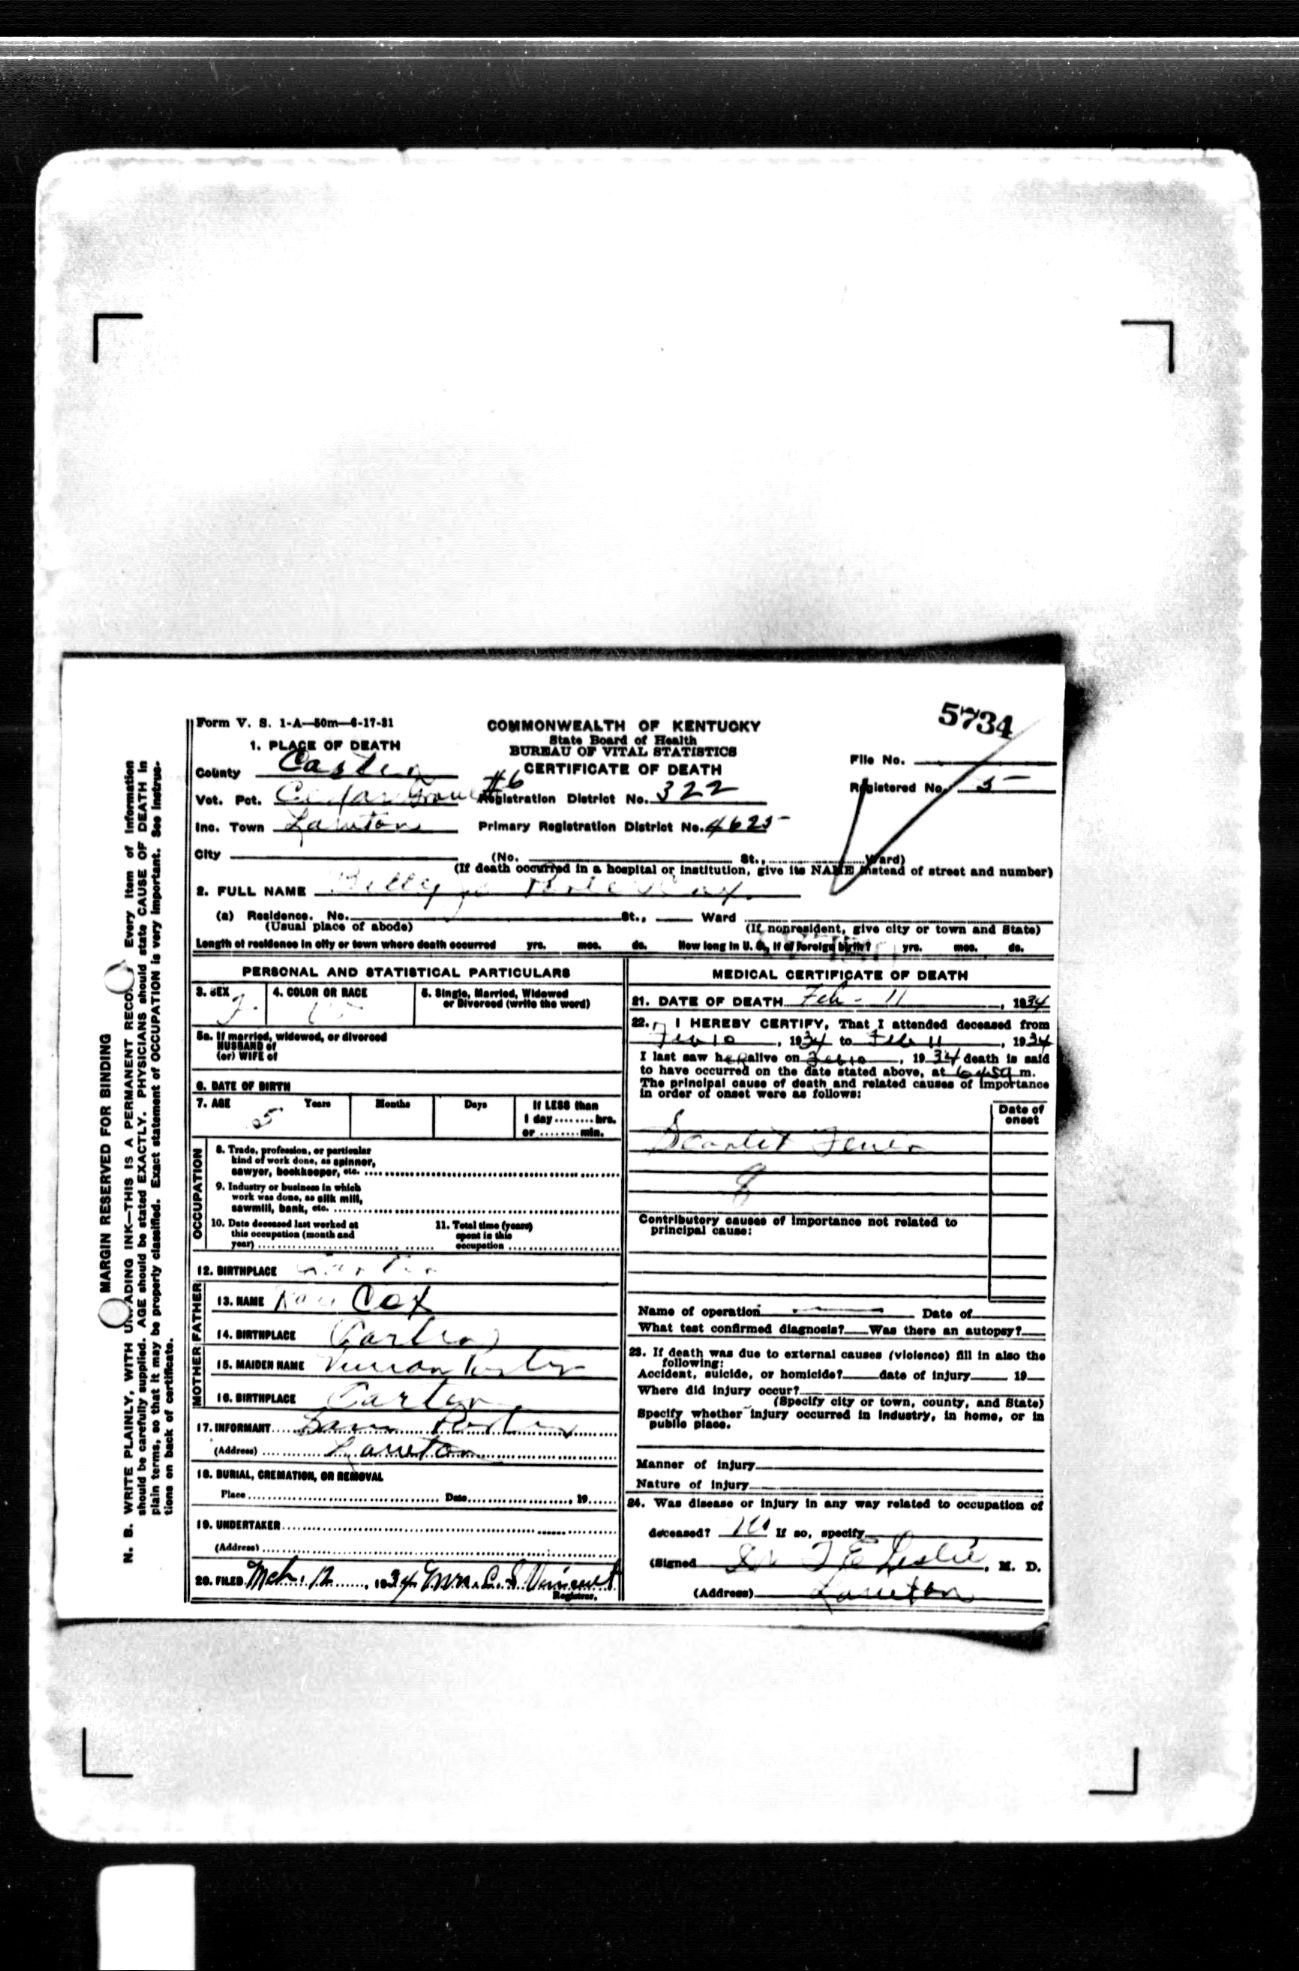 5734
Form V. S. 1-A—50m—6-17-31
COMMONWEALTH OF KENTUCKY
State Board of Health
BUREAU OF VITAL STATISTICS
CERTIFICATE OF DEATH
1. PLACE OF DEATH
County Carter
Vot. Pct. Cedar Grove #6
Inc. Town Lawton
City
Registration District No. 322
Primary Registration District No. 4625
File No.
Registered No. 5
(No. St., Ward)
(If death occurred in a hospital or institution, give its NAME instead of street and number)
2. FULL NAME Billy Cox
(a) Residence. No. St., Ward
(Usual place of abode) (If nonresident, give city or town and State)
Length of residence in city or town where death occurred yrs. mos. ds. How long in U. S., if of foreign birth? yrs. mos. ds.
PERSONAL AND STATISTICAL PARTICULARS
3. SEX F. 4. COLOR OR RACE 5. Single, Married, Widowed
or Divorced (write the word)
5a. If married, widowed, or divorced
HUSBAND of
(or) WIFE of
6. DATE OF BIRTH
7. AGE 5 Years Months Days If LESS than
1 day........hrs.
or ........min.
OCCUPATION
8. Trade, profession, or particular
kind of work done, as spinner,
sawyer, bookkeeper, etc.
9. Industry or business in which
work was done, as silk mill,
sawmill, bank, etc.
10. Date deceased last worked at
this occupation (month and
year)
11. Total time (years)
spent in this
occupation
12. BIRTHPLACE Carter
FATHER
13. NAME Cox
14. BIRTHPLACE Carter
MOTHER
15. MAIDEN NAME Porter
16. BIRTHPLACE Carter
17. INFORMANT Porter
(Address) Lawton
18. BURIAL, CREMATION, OR REMOVAL
Place Date 19
19. UNDERTAKER
(Address)
20. FILED Mch. 12, 1934 Mrs. C. S. Vincent
Registrar.
MEDICAL CERTIFICATE OF DEATH
21. DATE OF DEATH Feb - 11, 1934
22. I HEREBY CERTIFY, That I attended deceased from
Feb 10, 1934 to Feb 11, 1934
I last saw her alive on Feb 10, 1934 death is said
to have occurred on the date stated above, at m.
The principal cause of death and related causes of importance
in order of onset were as follows:
Date of
onset
Scarlet Fever
Contributory causes of importance not related to
principal cause:
Name of operation Date of
What test confirmed diagnosis? Was there an autopsy?
23. If death was due to external causes (violence) fill in also the
following:
Accident, suicide, or homicide? date of injury 19
Where did injury occur?
(Specify city or town, county, and State)
Specify whether injury occurred in industry, in home, or in
public place.
Manner of injury
Nature of injury
24. Was disease or injury in any way related to occupation of
deceased? No If so, specify
(Signed Dr J E Leslie, M. D.
(Address) Lawton
MARGIN RESERVED FOR BINDING
N. B. WRITE PLAINLY, WITH UNFADING INK—THIS IS A PERMANENT RECORD. Every item of information
should be carefully supplied. AGE should be stated EXACTLY. PHYSICIANS should state CAUSE OF DEATH in
plain terms, so that it may be properly classified. Exact statement of OCCUPATION is very important. See instruc-
tions on back of certificate.